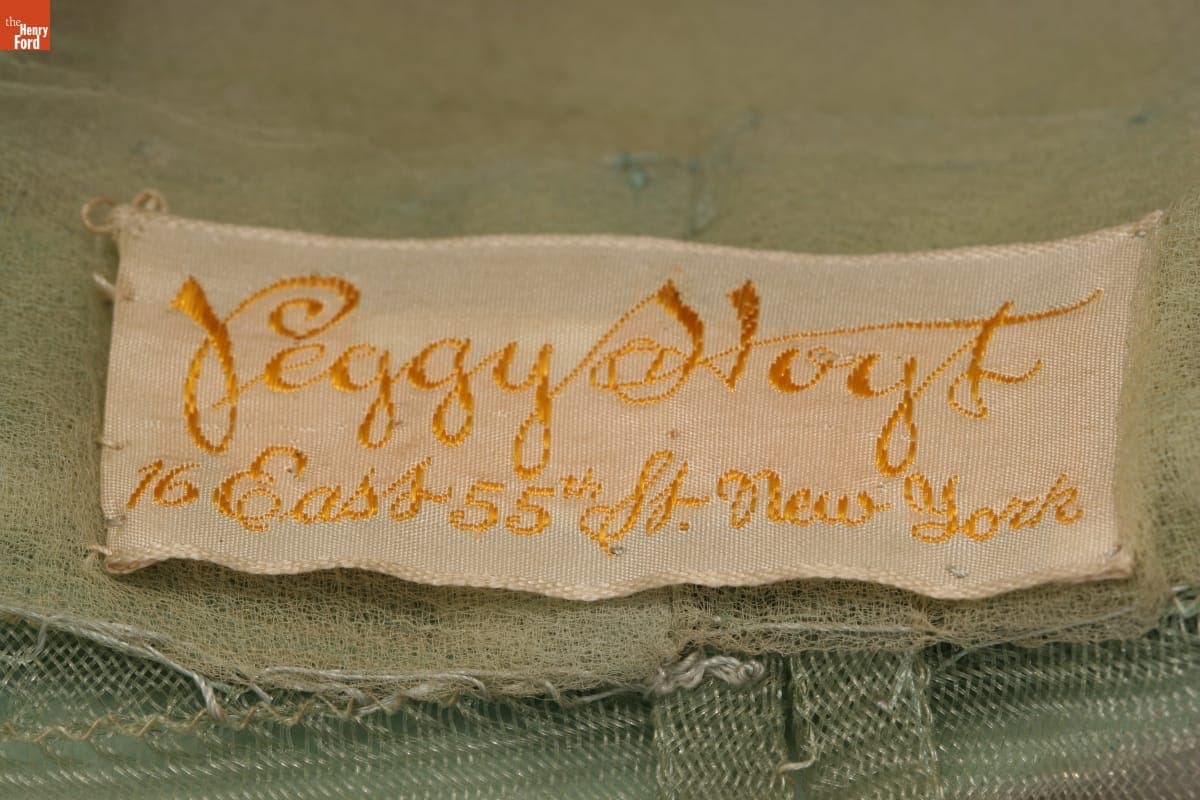 the
Henry
Ford
Peggy Hoyt
16 East 55th St. New York